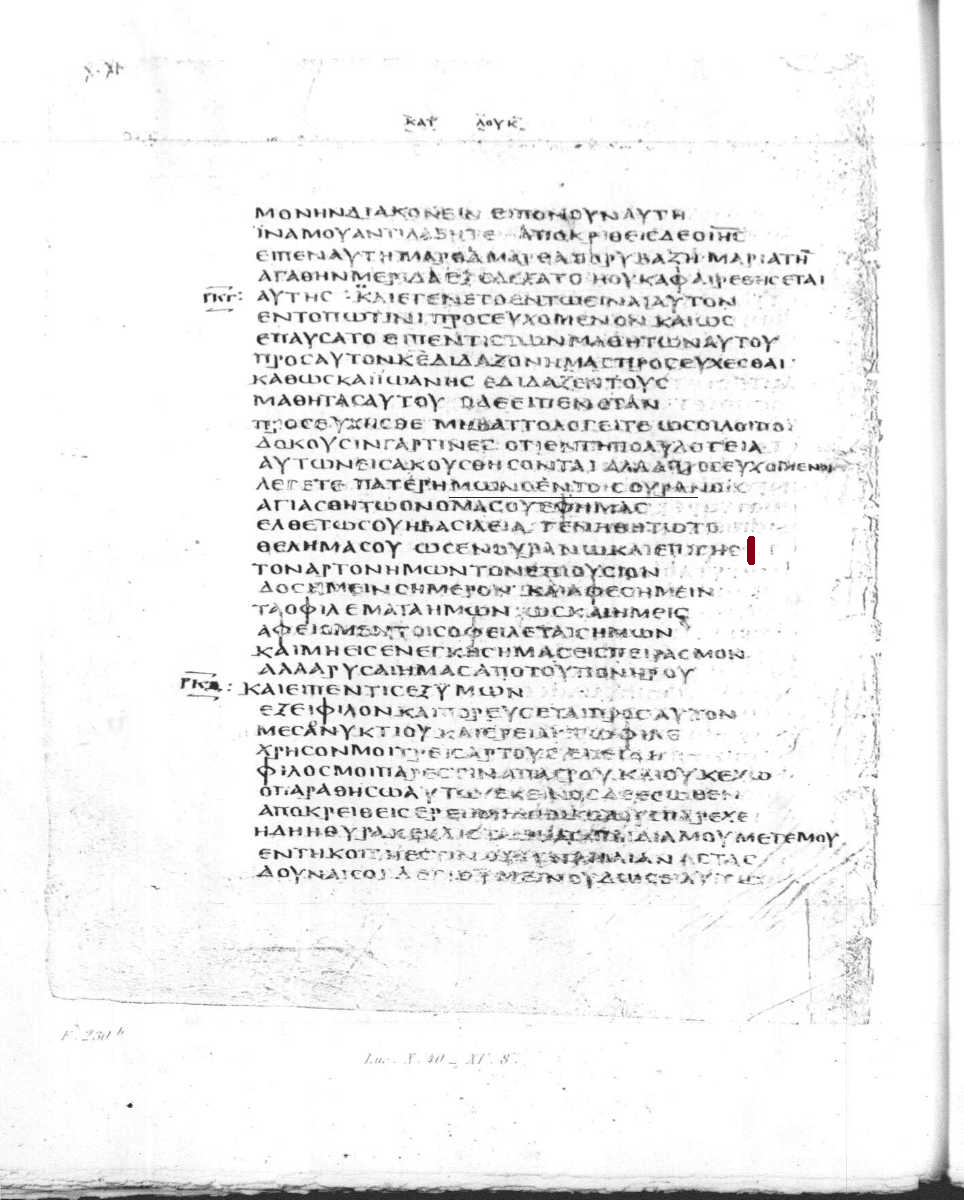 ΚΑΤ ΛΟΥΚ
ΜΟΝΗΝΔΙΑΚΟΝΕΙΝ ΕΙΠΟΝΟΥΝΑΥΤΗ
ΪΝΑΜΟΥΑΝΤΙΛΑΒΗΤΕ ΑΠΟΚΡΙΘΕΙϹΔΕΟΙΗϹ
ΕΙΠΕΝΑΥΤΗΜΑΡΘΑΜΑΡΘΑΘΟΡΥΒΑΖΗ ΜΑΡΙΑΤΗ
ΑΓΑΘΗΝΜΕΡΙΔΑΕΞΕΛΕΞΑΤΟ ΗΟΥΚΑΦΑΙΡΕΘΗϹΕΤΑΙ
ΡΚΓ: ΑΥΤΗϹ : ΚΑΙΕΓΕΝΕΤΟΕΝΤΩΕΙΝΑΙΑΥΤΟΝ
ΕΝΤΟΠΩΤΙΝΙ ΠΡΟϹΕΥΧΟΜΕΝΟΝ ΚΑΙΩϹ
ΕΠΑΥϹΑΤΟ ΕΙΠΕΝΤΙϹΤΩΝΜΑΘΗΤΩΝΑΥΤΟΥ
ΠΡΟϹΑΥΤΟΝΚΕΔΙΔΑΞΟΝΗΜΑϹΠΡΟϹΕΥΧΕϹΘΑΙ
ΚΑΘΩϹΚΑΙΪΩΑΝΗϹ ΕΔΙΔΑΞΕΝΤΟΥϹ
ΜΑΘΗΤΑϹΑΥΤΟΥ ΟΔΕΕΙΠΕΝΟΤΑΝ
ΠΡΟϹΕΥΧΗϹΘΕ ΜΗΒΑΤΤΟΛΟΓΕΙΤΕ ΩϹΟΙΛΟΙΠΟΙ
ΔΟΚΟΥϹΙΝΓΑΡΤΙΝΕϹ ΟΤΙΕΝΤΗΠΟΛΥΛΟΓΕΙΑ
ΑΥΤΩΝΕΙϹΑΚΟΥϹΘΗϹΟΝΤΑΙ ΑΛΛΑΠΡΟϹΕΥΧΟΜΕΝΟΙ
ΛΕΓΕΤΕ ΠΑΤΕΡΗΜΩΝΟΕΝΤΟΙϹΟΥΡΑΝΟΙϹ
ΑΓΙΑϹΘΗΤΩΟΝΟΜΑϹΟΥΕΦΗΜΑϹ
ΕΛΘΕΤΩϹΟΥΗΒΑϹΙΛΕΙΑ ΓΕΝΗΘΗΤΩΤΟ
ΘΕΛΗΜΑϹΟΥ ΩϹΕΝΟΥΡΑΝΩΚΑΙΕΠΙΓΗϹ
ΤΟΝΑΡΤΟΝΗΜΩΝΤΟΝΕΠΙΟΥϹΙΟΝ
ΔΟϹΕΜΕΙΝϹΗΜΕΡΟΝ ΚΑΙΑΦΕϹΗΜΕΙΝ
ΤΑΟΦΙΛΕΜΑΤΑΗΜΩΝ ΩϹΚΑΙΗΜΕΙϹ
ΑΦΕΙΟΜΕΝΤΟΙϹΟΦΕΙΛΕΤΑΙϹΗΜΩΝ
ΚΑΙΜΗΕΙϹΕΝΕΓΚΗϹΗΜΑϹΕΙϹΠΕΙΡΑϹΜΟΝ
ΑΛΛΑΡΥϹΑΙΗΜΑϹΑΠΟΤΟΥΠΟΝΗΡΟΥ
ΡΚΔ: ΚΑΙΕΙΠΕΝΤΙϹΕΞΥΜΩΝ
ΕΞΕΙΦΙΛΟΝΚΑΙΠΟΡΕΥϹΕΤΑΙΠΡΟϹΑΥΤΟΝ
ΜΕϹΑΝΥΚΤΙΟΥ ΚΑΙΕΡΕΙΑΥΤΩΦΙΛΕ
ΧΡΗϹΟΝΜΟΙΤΡΕΙϹΑΡΤΟΥϹ ΕΠΕΙΔΗ
ΦΙΛΟϹΜΟΙΠΑΡΕϹΤΙΝΑΠΑΓΡΟΥ ΚΑΙΟΥΚΕΧΩ
ΟΠΑΡΑΘΗϹΩΑΥΤΩ ΕΚΕΙΝΟϹΔΕΕϹΩΘΕΝ
ΑΠΟΚΡΕΙΘΕΙϹΕΡΕΙ ΜΗΜΟΙΚΟΠΟΥϹΠΑΡΕΧΕ
ΗΔΗΗΘΥΡΑΚΕΚΛΙϹΤΑΙ ΜΟΥΜΕΤΕΜΟΥ
ΕΝΤΗΚΟΙΤΗΕϹΤΙΝ ΟΥΔΥΝΑΜΑΙΑΝΑϹΤΑϹ
ΔΟΥΝΑΙϹΟΙ ΛΕΓΩΥΜΕΙΝΟΥΔΩϹΕΙΑΥΤΩ
F. 230 b
Luc. X. 40 _ XI. 8.